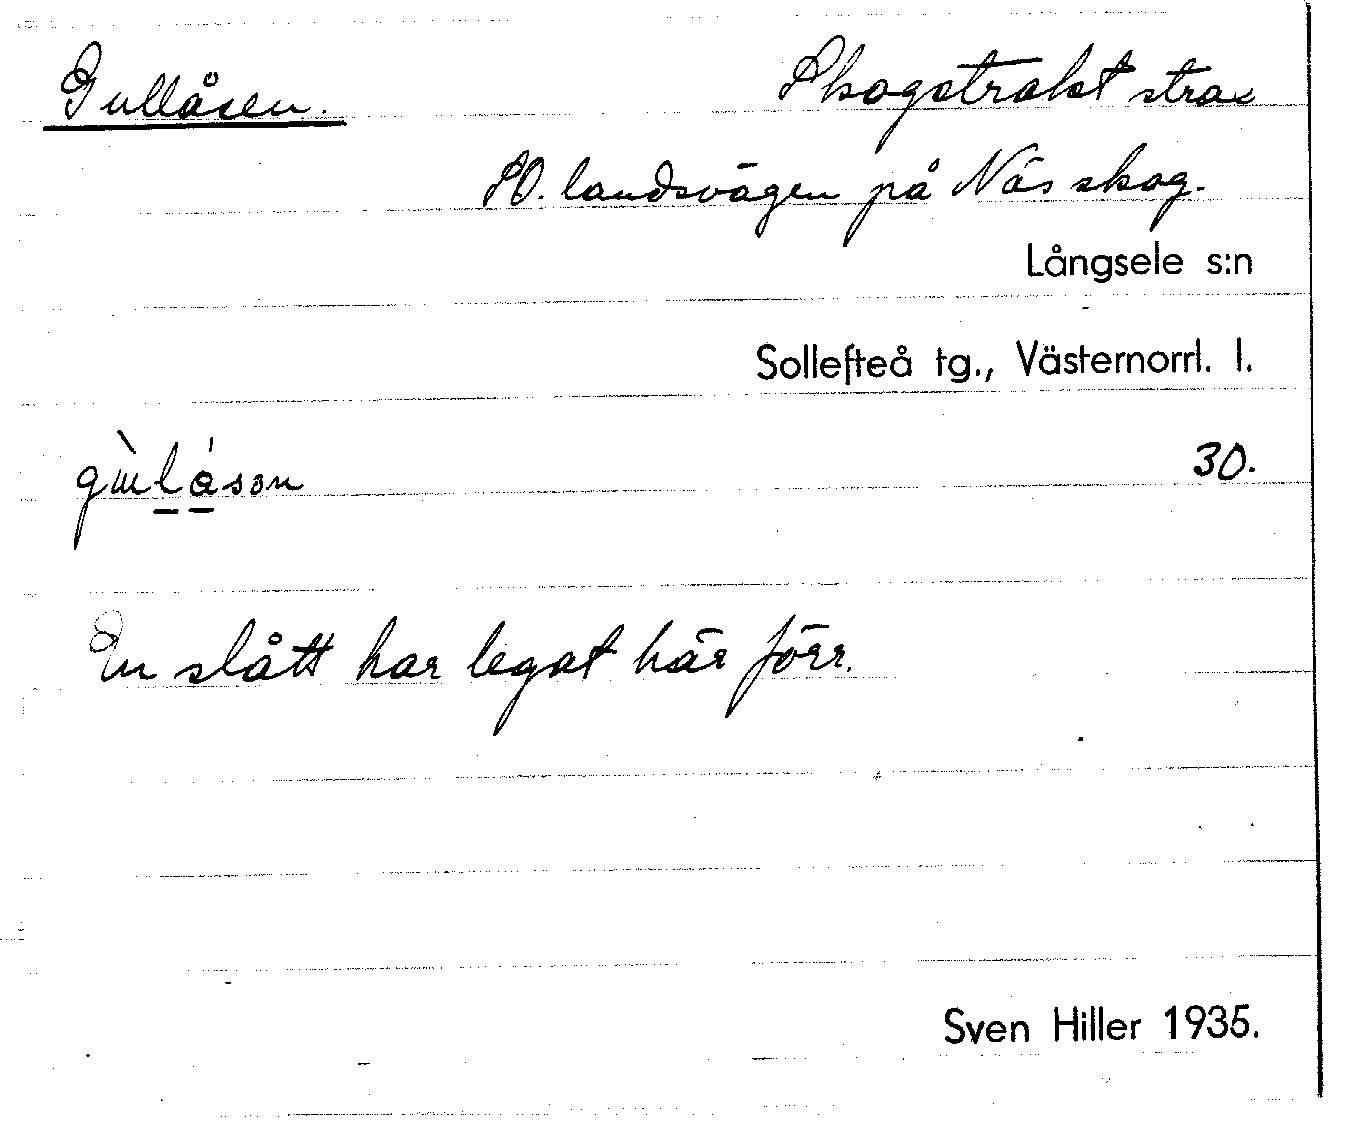 Gullåsen. Skogstrakt strax
SO. landsvägen på Näs skog.
Långsele s:n
Sollefteå tg., Västernorrl. l.
30.
En slått har legat här förr.
Sven Hiller 1935.